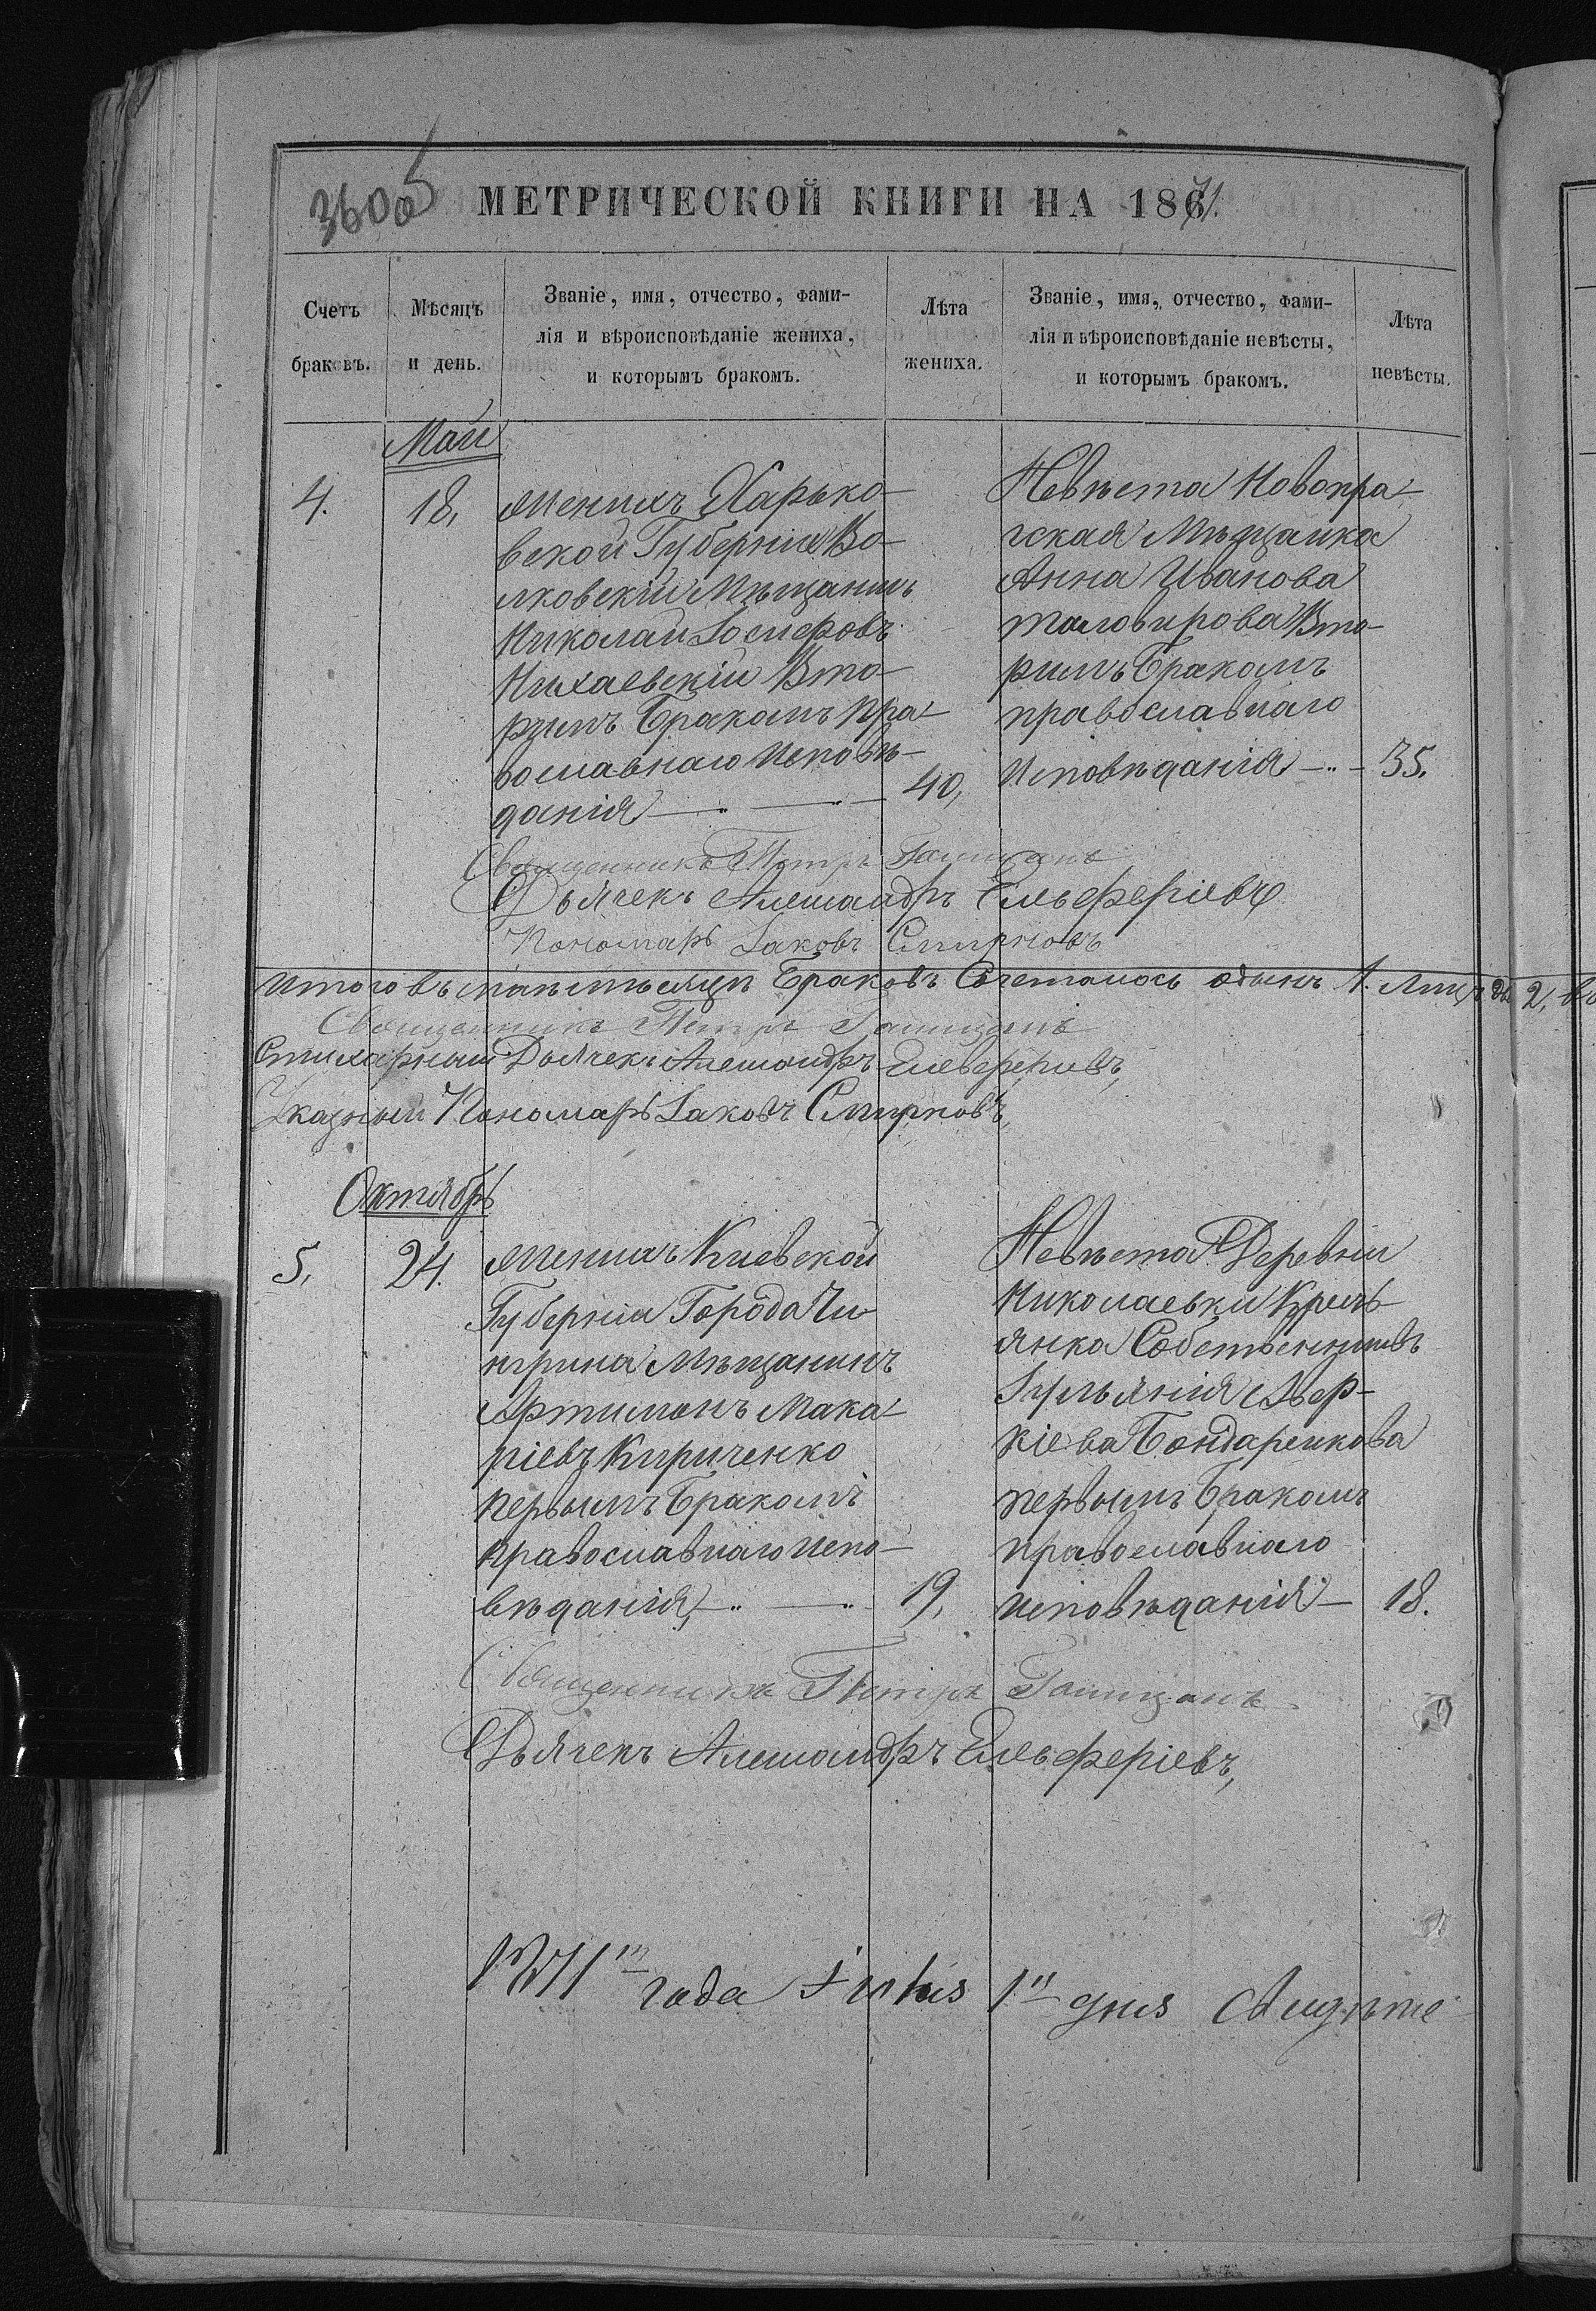 360об
МЕТРИЧЕСКОЙ КНИГИ НА 1871.
Счетъ браковъ.
Мѣсяцъ и день.
Званіе, имя, отчество, фами-
лія и вѣроисповѣданіе жениха,
и которымъ бракомъ.
Лѣта жениха.
Званіе, имя, отчество, фами-
лія и вѣроисповѣданіе невѣсты,
и которымъ бракомъ.
Лѣта невѣсты.
Май
4.
18,
Женихъ Харько-
вской Губерніи Во-
лковскій Мѣщанинъ
Николай Іосифовъ
Михаевскій Вто-
рымъ Бракомъ пра-
вославнаго Исповѣ-
данія
40,
Невѣста Новопра-
гская Мѣщанка
Анна Иванова
Вто-
римъ Бракомъ
православнаго
Исповѣданія
35.
Священникъ Петръ
Дьячекъ Александръ Ельеферіевъ
Пономарь Іаковъ Смирновъ
Итого въ маѣ мѣсяцѣ Браковъ Сочеталось одынъ 1. Лицъ дв. 2,
Священникъ Петръ
Стихарный Дьячекъ Александръ Елеферіевъ,
Указный Пономарь Іаковъ Смирновъ,
Октябрь
5,
24.
Женихъ Киевской
Губерніи Города Чи
гирина Мѣщанинъ
Артимонъ Мака-
ріевъ Кириченко
первымъ Бракомъ
православнаго испо-
вѣданія,
19,
Невѣста Деревни
Николаевки Кресть
янка Собственниковъ
Іулья́нія Авер-
кіева Бондаренкова
первымъ Бракомъ
православнаго
исповѣданія
18.
Священникъ Петръ
Дьячекъ Александръ Ельеферіевъ,
1871го года 1го дня Свидѣте